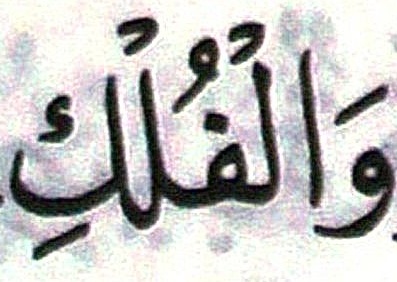 وَالْفُلْكِ